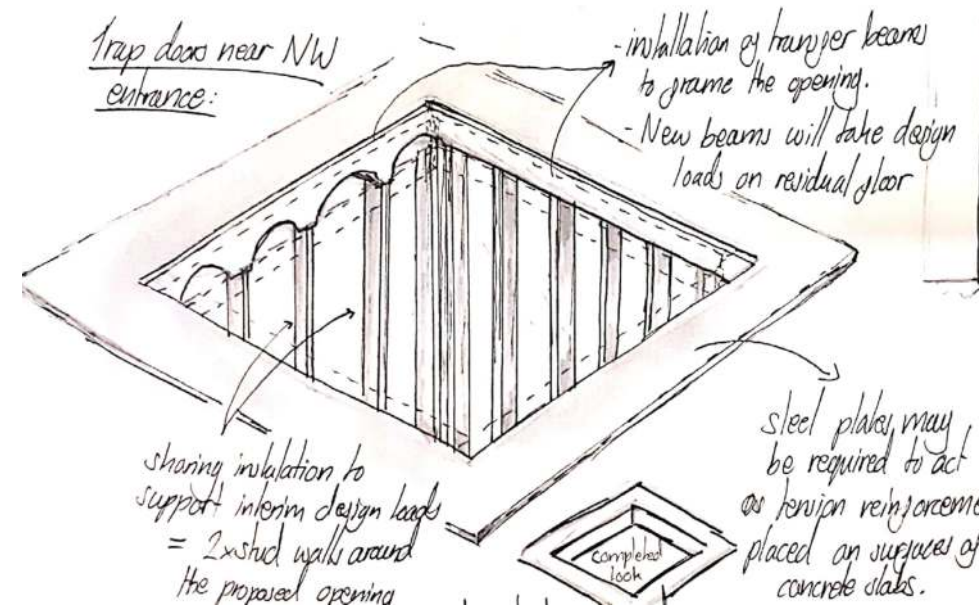 Trap doors near NW
entrance:
- installation of transfer beams
to frame the opening.
- New beams will take design
loads on residual floor
shoring installation to
support interim design loads
= 2xstud walls around
the proposed opening
completed
look
steel plates may
be required to act
as tension reinforceme
placed on surfaces of
concrete slabs.